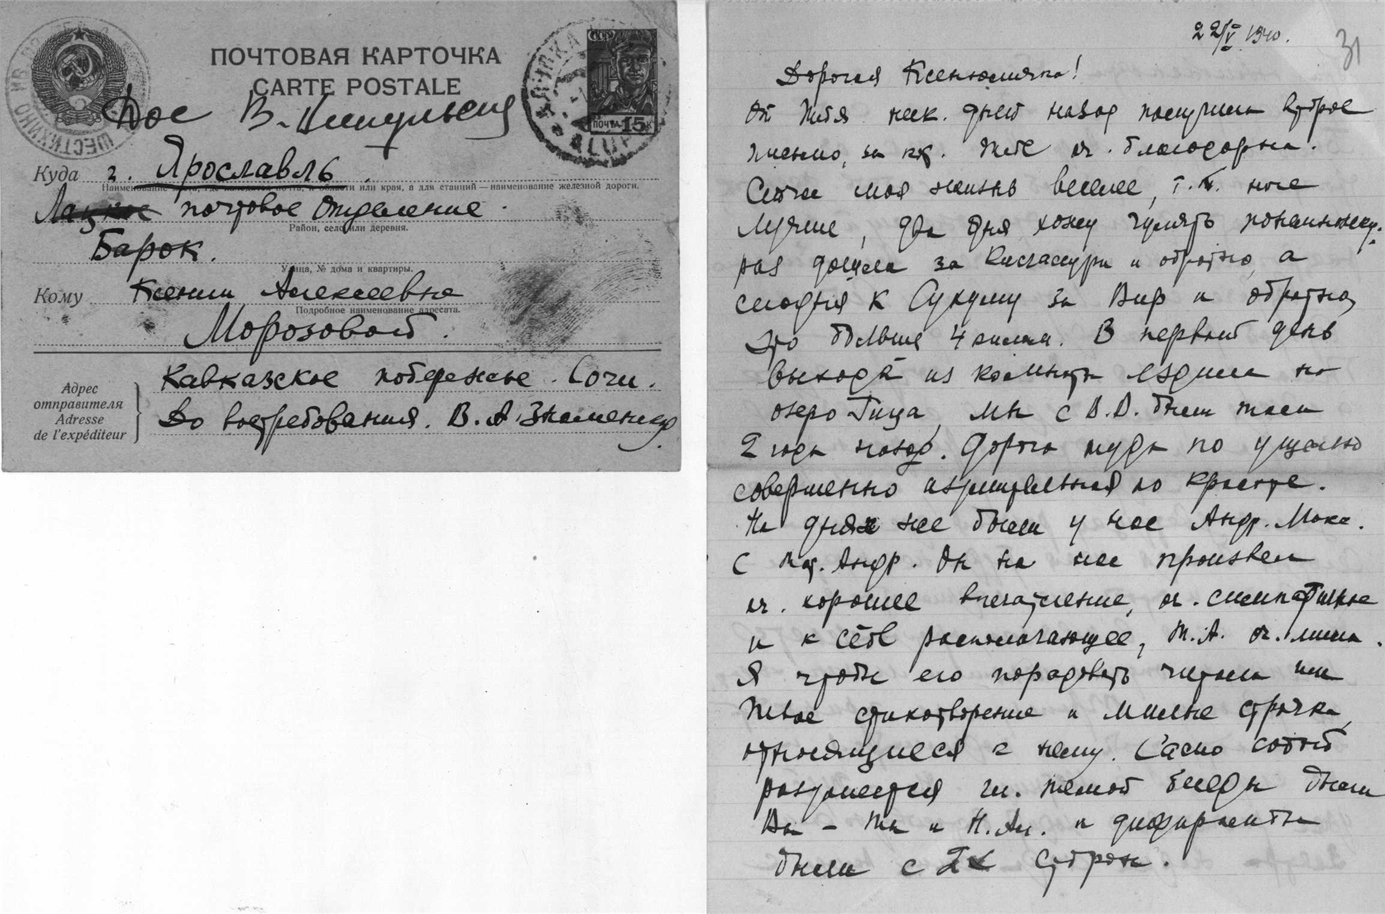 ПОЧТОВАЯ КАРТОЧКА
CARTE POSTALE
ПОЧТА 15 К
Куда г. Ярославль
Наименование места, области или края, а для станций — наименование железной дороги.
почтовое отделение
Район, село или деревня.
Барок.
Улица, № дома и квартиры.
Кому Ксении Алексеевне
Подробное наименование адресата.
Морозовой.
Адрес
отправителя
Adresse
de l'expéditeur
Кавказское побережье. Сочи.
До востребования. В. А. Знаменск
22/V 1940.
31
Дорогая
От тебя неск. дней назад получила второе
письмо, за кк. тебе оч. благодарна.
Сейчас моя жизнь веселее, т.к. ноге
лучше, два дня хожу гулять
раз дошла за и обратно, а
сегодня к за и обратно,
это больше 4 килом. В первый день
выхода из комнаты ездила на
озеро Рица, мы с В.В. были там
2 года назад. Дорога туда по ущелью
совершенно изумительная по красоте.
На днях же были у нас Андр. Макс.
с Андр. Он на нас произвел
оч. хорошее впечатление, оч. симпатичное
и к себе располагающее, Т.А. оч. мила.
Я чтобы его порадовать читала им
твое стихотворение и милые строчки,
относящиеся к нему. Само собой
разумеется гл. темой беседы были
Вы – ты и Н.Ал. и дифирамбы
были с 2х сторон.